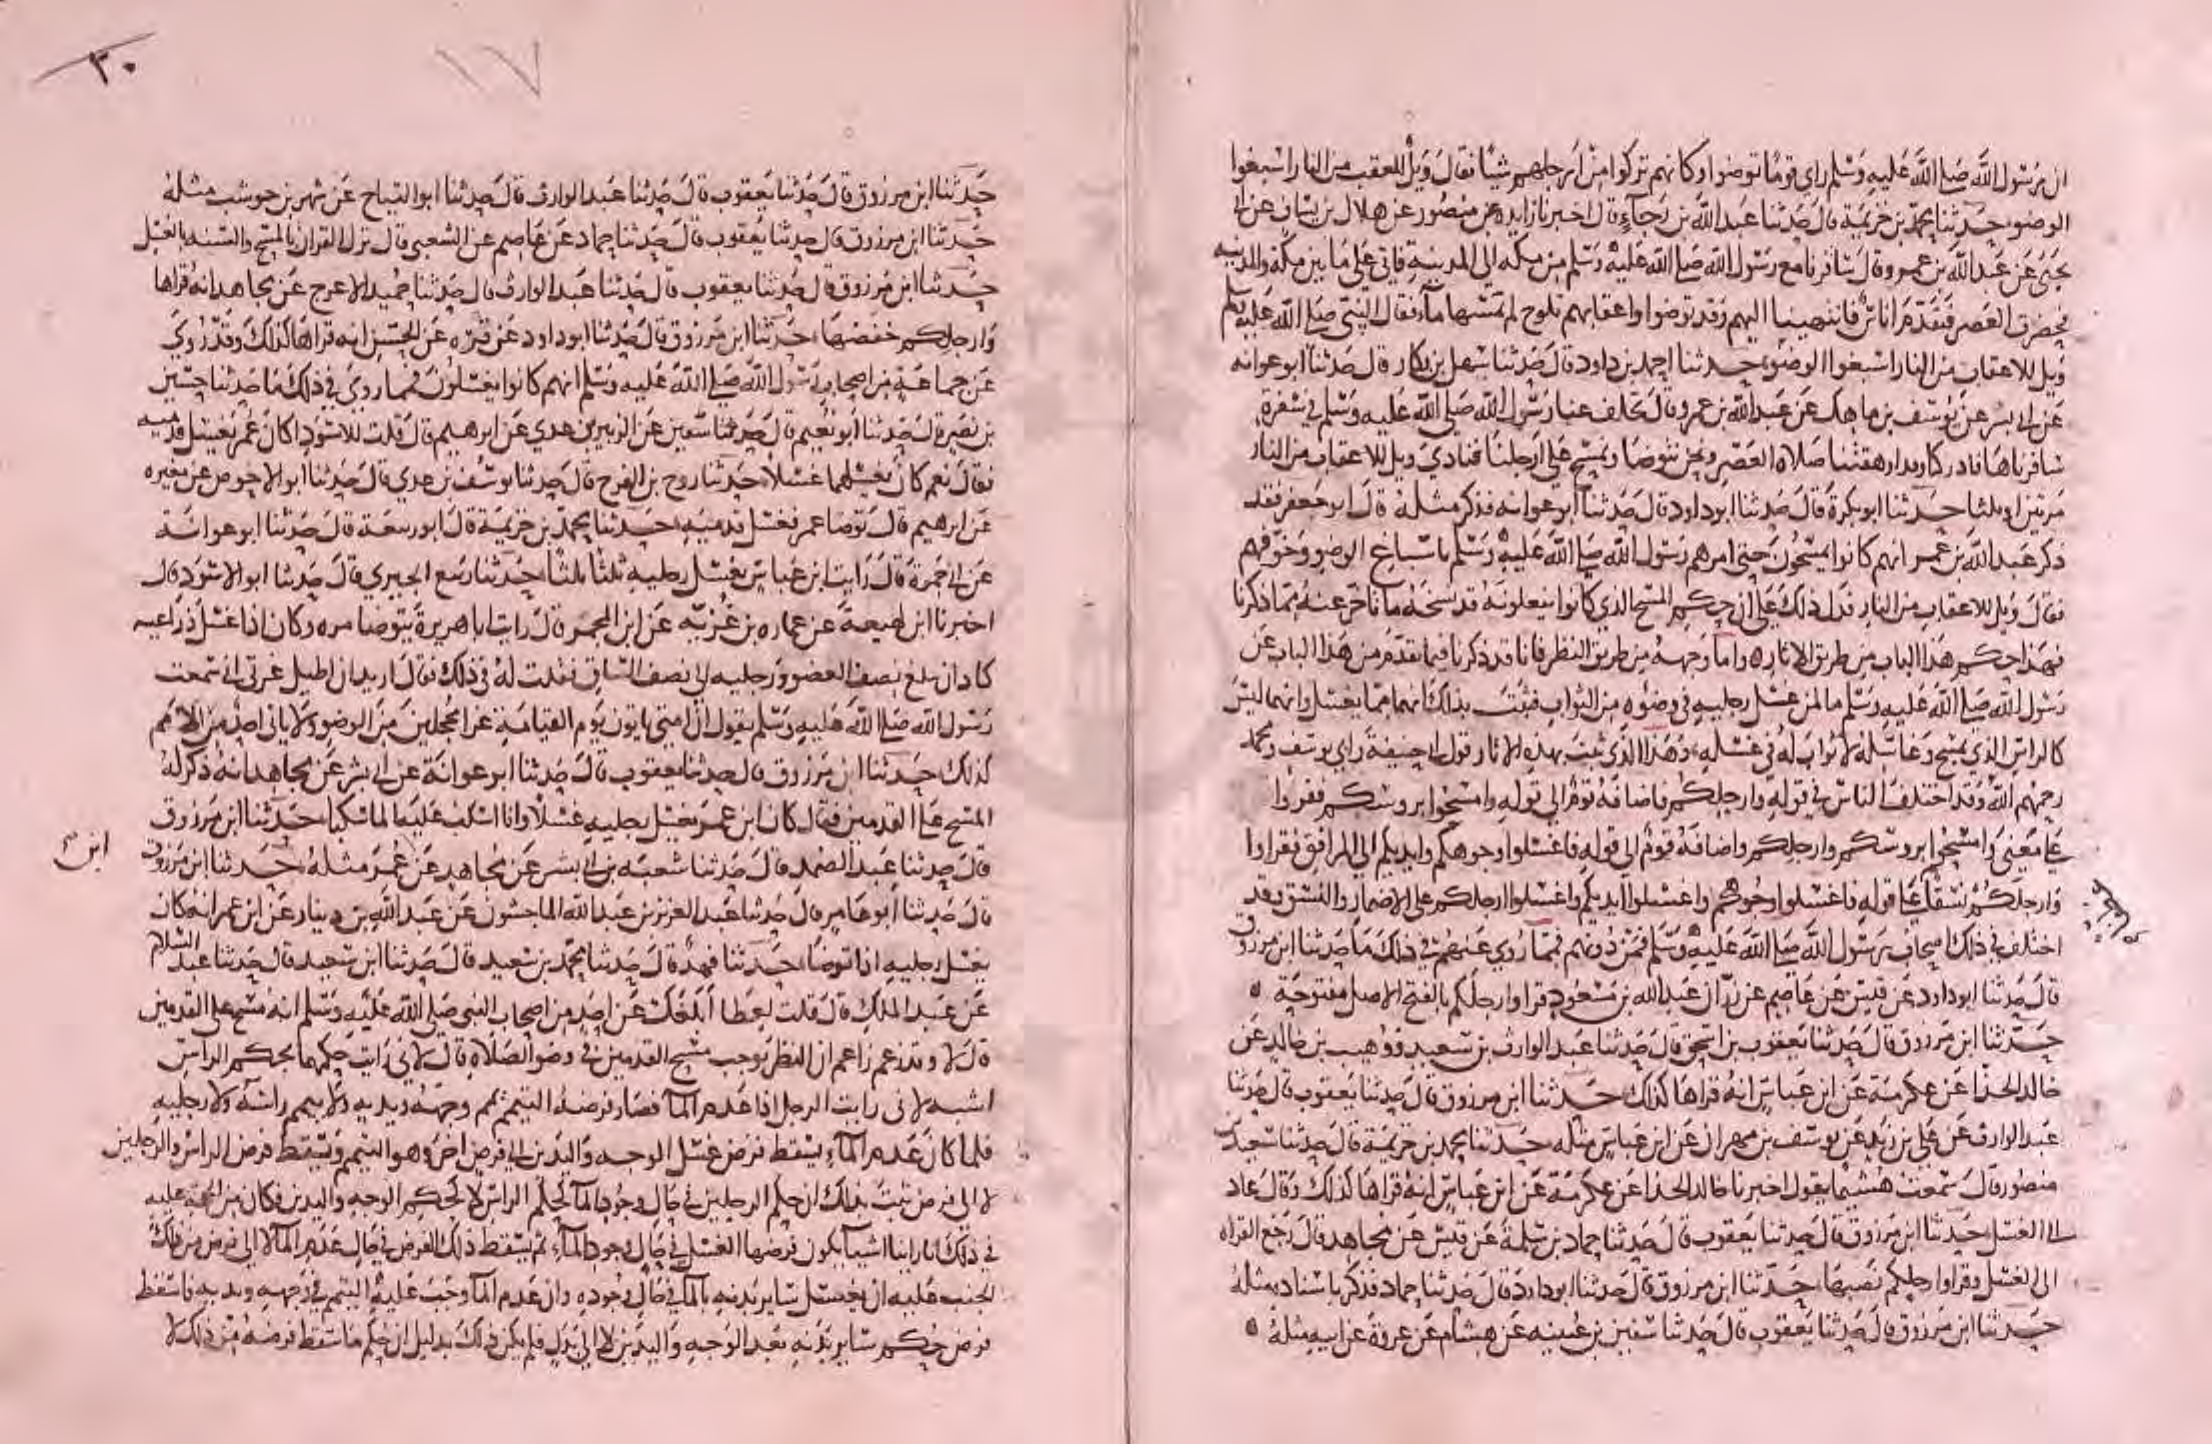 ان رسول الله صلى الله عليه وسلم راى قوما توضوا وكانهم تركوا من ارجلهم شيا فقال ويل للعقب من النار اسبغوا
الوضو حدثنا محمد بن خزيمة قال حدثنا عبد الله بن رجاء قال اخبرنا زايده عن منصور عن هلال بن يساف عن ابي
يحيى عن عبد الله بن عمرو قال سافرنا مع رسول الله صلى الله عليه وسلم من مكه الى المدينة فاتى على ما بين مكة والمدينه
فحضرت العصر فتقدم اناس فانتهينا اليهم وقد توضوا واعقابهم تلوح لم تمسها ماء فقال النبي صلى الله عليه وسلم
ويل للاعقاب من النار اسبغوا الوضو حدثنا احمد بن داود قال حدثنا سهل بن بكار قال حدثنا ابو عوانه
عن ابي بشر عن يوسف بن ماهك عن عبد الله بن عمرو قال تخلف عنا رسول الله صلى الله عليه وسلم في سفرة
سافرناها فادركنا وقد ارهقتنا صلاة العصر ونحن نتوضا ونمسح على ارجلنا فنادى ويل للاعقاب من النار
مرتين او ثلثا حدثنا ابو بكرة قال حدثنا ابو داود قال حدثنا ابو عوانه فذكر مثله قال ابو جعفر فقد
ذكر عبد الله بن عمر انهم كانوا يمسحون حتى امرهم رسول الله صلى الله عليه وسلم باسباغ الوضو وخوفهم
فقال ويل للاعقاب من النار فدل ذلك على ان حكم المسح الذي كانوا يفعلونه قد نسخه ما تاخر عنه مما ذكرنا
فهذا حكم هذا الباب من طريق الاثار واما وجهه من طريق النظر فانا قد ذكرنا فيما تقدم من هذا الباب عن
رسول الله صلى الله عليه وسلم ما لمن غسل رجليه في وضوه من الثواب فثبت بذلك انهما مما يغسل وانهما ليس
كالراس الذي يمسح وغاسله لا ثواب له في غسله وهذا الذي ثبت بهذه الاثار قول ابي حنيفة وابي يوسف ومحمد
رحمهم الله وقد اختلف الناس في قوله وارجلكم فاضافه قوم الى قوله وامسحوا بروسكم فقروا
على معنى وامسحوا بروسكم وارجلكم واضافه قوم الى قوله فاغسلوا وجوهكم وايديكم الى المرافق فقراوا
وارجلكم نسقا على قوله فاغسلوا وجوهكم واغسلوا ايديكم واغسلوا ارجلكم على الاضمار والنسق وقد
اختلف في ذلك اصحاب رسول الله صلى الله عليه وسلم فمن دونهم فمما روي عنهم في ذلك ما حدثنا ابن مرزوق
قال حدثنا ابو داود عن قيس عن عاصم عن زر ان عبد الله بن مسعود قرا وارجلكم بالفتح
حدثنا ابن مرزوق قال حدثنا يعقوب بن اسحق قال حدثنا عبد الوارث بن سعيد ووهيب بن خالد عن
خالد الحذا عن عكرمة عن ابن عباس انه قراها كذلك حدثنا ابن مرزوق قال حدثنا يعقوب قال حدثنا
عبد الوارث عن علي بن زيد عن يوسف بن مهران عن ابن عباس مثله حدثنا محمد بن خزيمة قال حدثنا سعيد بن
منصور قال سمعت هشيما يقول اخبرنا خالد الحذا عن عكرمة عن ابن عباس انه قراها كذلك وقال عاد
الى الغسل حدثنا ابن مرزوق قال حدثنا يعقوب قال حدثنا حماد بن سلمة عن قيس عن مجاهد قال رجع القران
الى الغسل وقراوا رجلكم نصبها حدثنا ابن مرزوق قال حدثنا ابو داود قال حدثنا حماد فذكر باسناده مثله
حدثنا ابن مرزوق قال حدثنا يعقوب قال حدثنا سفين بن عيينه عن هشام عن عروة عن ابيه مثله
٣٠
١٧
حدثنا ابن مرزوق قال حدثنا يعقوب قال حدثنا عبد الوارث قال حدثنا ابو التياح عن شهر بن حوشب مثله
حدثنا ابن مرزوق قال حدثنا يعقوب قال حدثنا حماد عن عاصم عن الشعبي قال نزل القران بالمسح والسنه بالغسل
حدثنا ابن مرزوق قال حدثنا يعقوب قال حدثنا عبد الوارث قال حدثنا حميد الاعرج عن مجاهد انه قراها
وارجلكم خفضها حدثنا ابن مرزوق قال حدثنا ابو داود عن قرة عن الحسن انه قراها كذلك وقد روي
عن جماعة من اصحاب رسول الله صلى الله عليه وسلم انهم كانوا يغسلون فمما روي في ذلك ما حدثنا حسين
بن نصر قال حدثنا ابو نعيم قال حدثنا سفين عن الزبير بن عدي عن ابرهيم قال قلت للاسود اكان عمر يغسل قدميه
فقال نعم كان يغسلهما غسلا حدثنا روح بن الفرج قال حدثنا يوسف بن عدي قال حدثنا ابو الاحوص عن مغيره
عن ابرهيم قال توضا عمر فغسل قدميه حدثنا محمد بن خزيمة قال ابو ربيعة قال حدثنا ابو عوانة
عن ابي جمرة قال رايت ابن عباس يغسل رجليه ثلثا ثلثا حدثنا ربيع الجيزي قال حدثنا ابو الاسود قال
اخبرنا ابن لهيعة عن عماره بن غزية عن ابن المجمر قال رايت ابا هريرة يتوضا مره وكان اذا غسل ذراعيه
كاد ان يبلغ نصف العضو ورجليه الى نصف الساق فقلت له في ذلك فقال اريد ان اطيل غرتي اني سمعت
رسول الله صلى الله عليه وسلم يقول ان امتي ياتون يوم القيامة غرا محجلين من الوضو ولا ياتي احد من الامم
كذلك حدثنا ابن مرزوق قال حدثنا يعقوب قال حدثنا ابو عوانة عن ابي بشر عن مجاهد انه ذكر له
المسح على القدمين فقال كان ابن عمر يغسل رجليه غسلا وانا اسكب عليه الما سكبا حدثنا ابن مرزوق
قال حدثنا عبد الصمد قال حدثنا شعبة بن ابي بشر عن مجاهد عن عمر مثله حدثنا ابن مرزوق
ابن
قال حدثنا ابو عامر قال حدثنا عبد العزيز بن عبد الله الماجشون عن عبد الله بن دينار عن ابن عمر انه كان
يغسل رجليه اذا توضا حدثنا فهد قال حدثنا محمد بن سعيد قال حدثنا ابن سعيد قال حدثنا عبد السلام
عن عبد الملك قال قلت لعطا ابلغك عن احد من اصحاب النبي صلى الله عليه وسلم انه مسح على القدمين
قال لا وقد زعم زاعم ان النظر يوجب مسح القدمين في وضو الصلاة قال لاني رايت حكمهما بحكم الراس
اشبه لاني رايت الرجل اذا عدم الما فصار فرضه التيمم يمم وجهه ويديه ولا ييمم راسه ولا رجليه
فلما كان عدم الماء يسقط فرض غسل الوجه واليدين الى فرض اخر وهو التيمم ويسقط فرض الراس والرجلين
لا الى فرض ثبت بذلك ان حكم الرجلين في حال وجود الما كحكم الراس لا كحكم الوجه واليدين فكان من الحجة عليه
في ذلك انا راينا اشيا يكون فرضها الغسل في حال وجود الماء ثم يسقط ذلك الفرض في حال عدم الما لا الى فرض من ذلك
الجنب عليه ان يغسل ساير بدنه بالما في حال وجوده وان عدم الما وجب عليه التيمم في وجهه ويديه فاسقط
فرض حكم ساير بدنه بعد الوجه واليدين لا الى بدل فلم يكن ذلك بدليل ان حكم ما سقط فرضه من ذلك لا